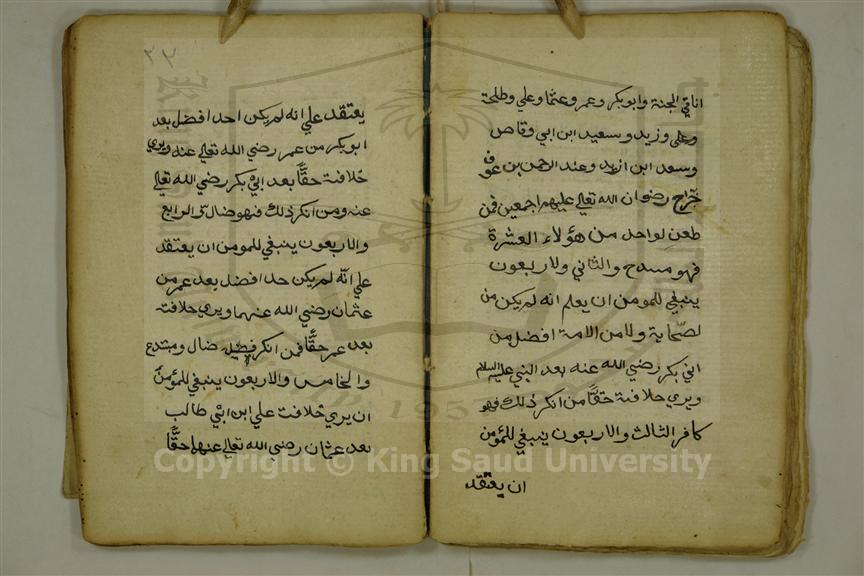 انا في الجنة وابو بكر وعمر وعثما وعلي وطلحة
وعلى وزيد وسعيد ابن ابي وقاص
وسعد ابن ازيد وعند الرحمن بن عوف
جراح رضوان الله تعالى عليهم اجمعين فمن
طعن لواحد من هؤلاء العشرة
فهو مبتدح والثاني ولاربعون
ينبغي للمومن ان يعلم انه لم يكن من
لصحابة ولا من الامة افضل من
ابي بكر رضي الله عنه بعد النبي عليه السلام
ويري خلافة حقا من انكر ذلك فهو
كافر الثالث والاربعون ينبغي للمؤمن
ان يعتقد
٣٢
يعتقد علي انه لم يكن احد افضل بعد
ابو بكر من عمر رضي الله تعالى عنه ويري
خلافة حقا بعد ابي بكر رضي الله تعالى
عنه ومن انكر ذلك فهو ضال والرابع
والاربعون ينبغي للمومن ان يعتقد
علي انه لم يكن حد افضل بعد عمر من
عثمان رضي الله عنهما ويري خلافته
بعد عمر حقا فمن انكر ضال ومبتدع
والخامس والاربعون ينبغي للمؤمن
ان يري خلافت علي ابن ابي طالب
بعد عثمان رضي الله تعالى عنهما حقا
Copyright © King Saud University